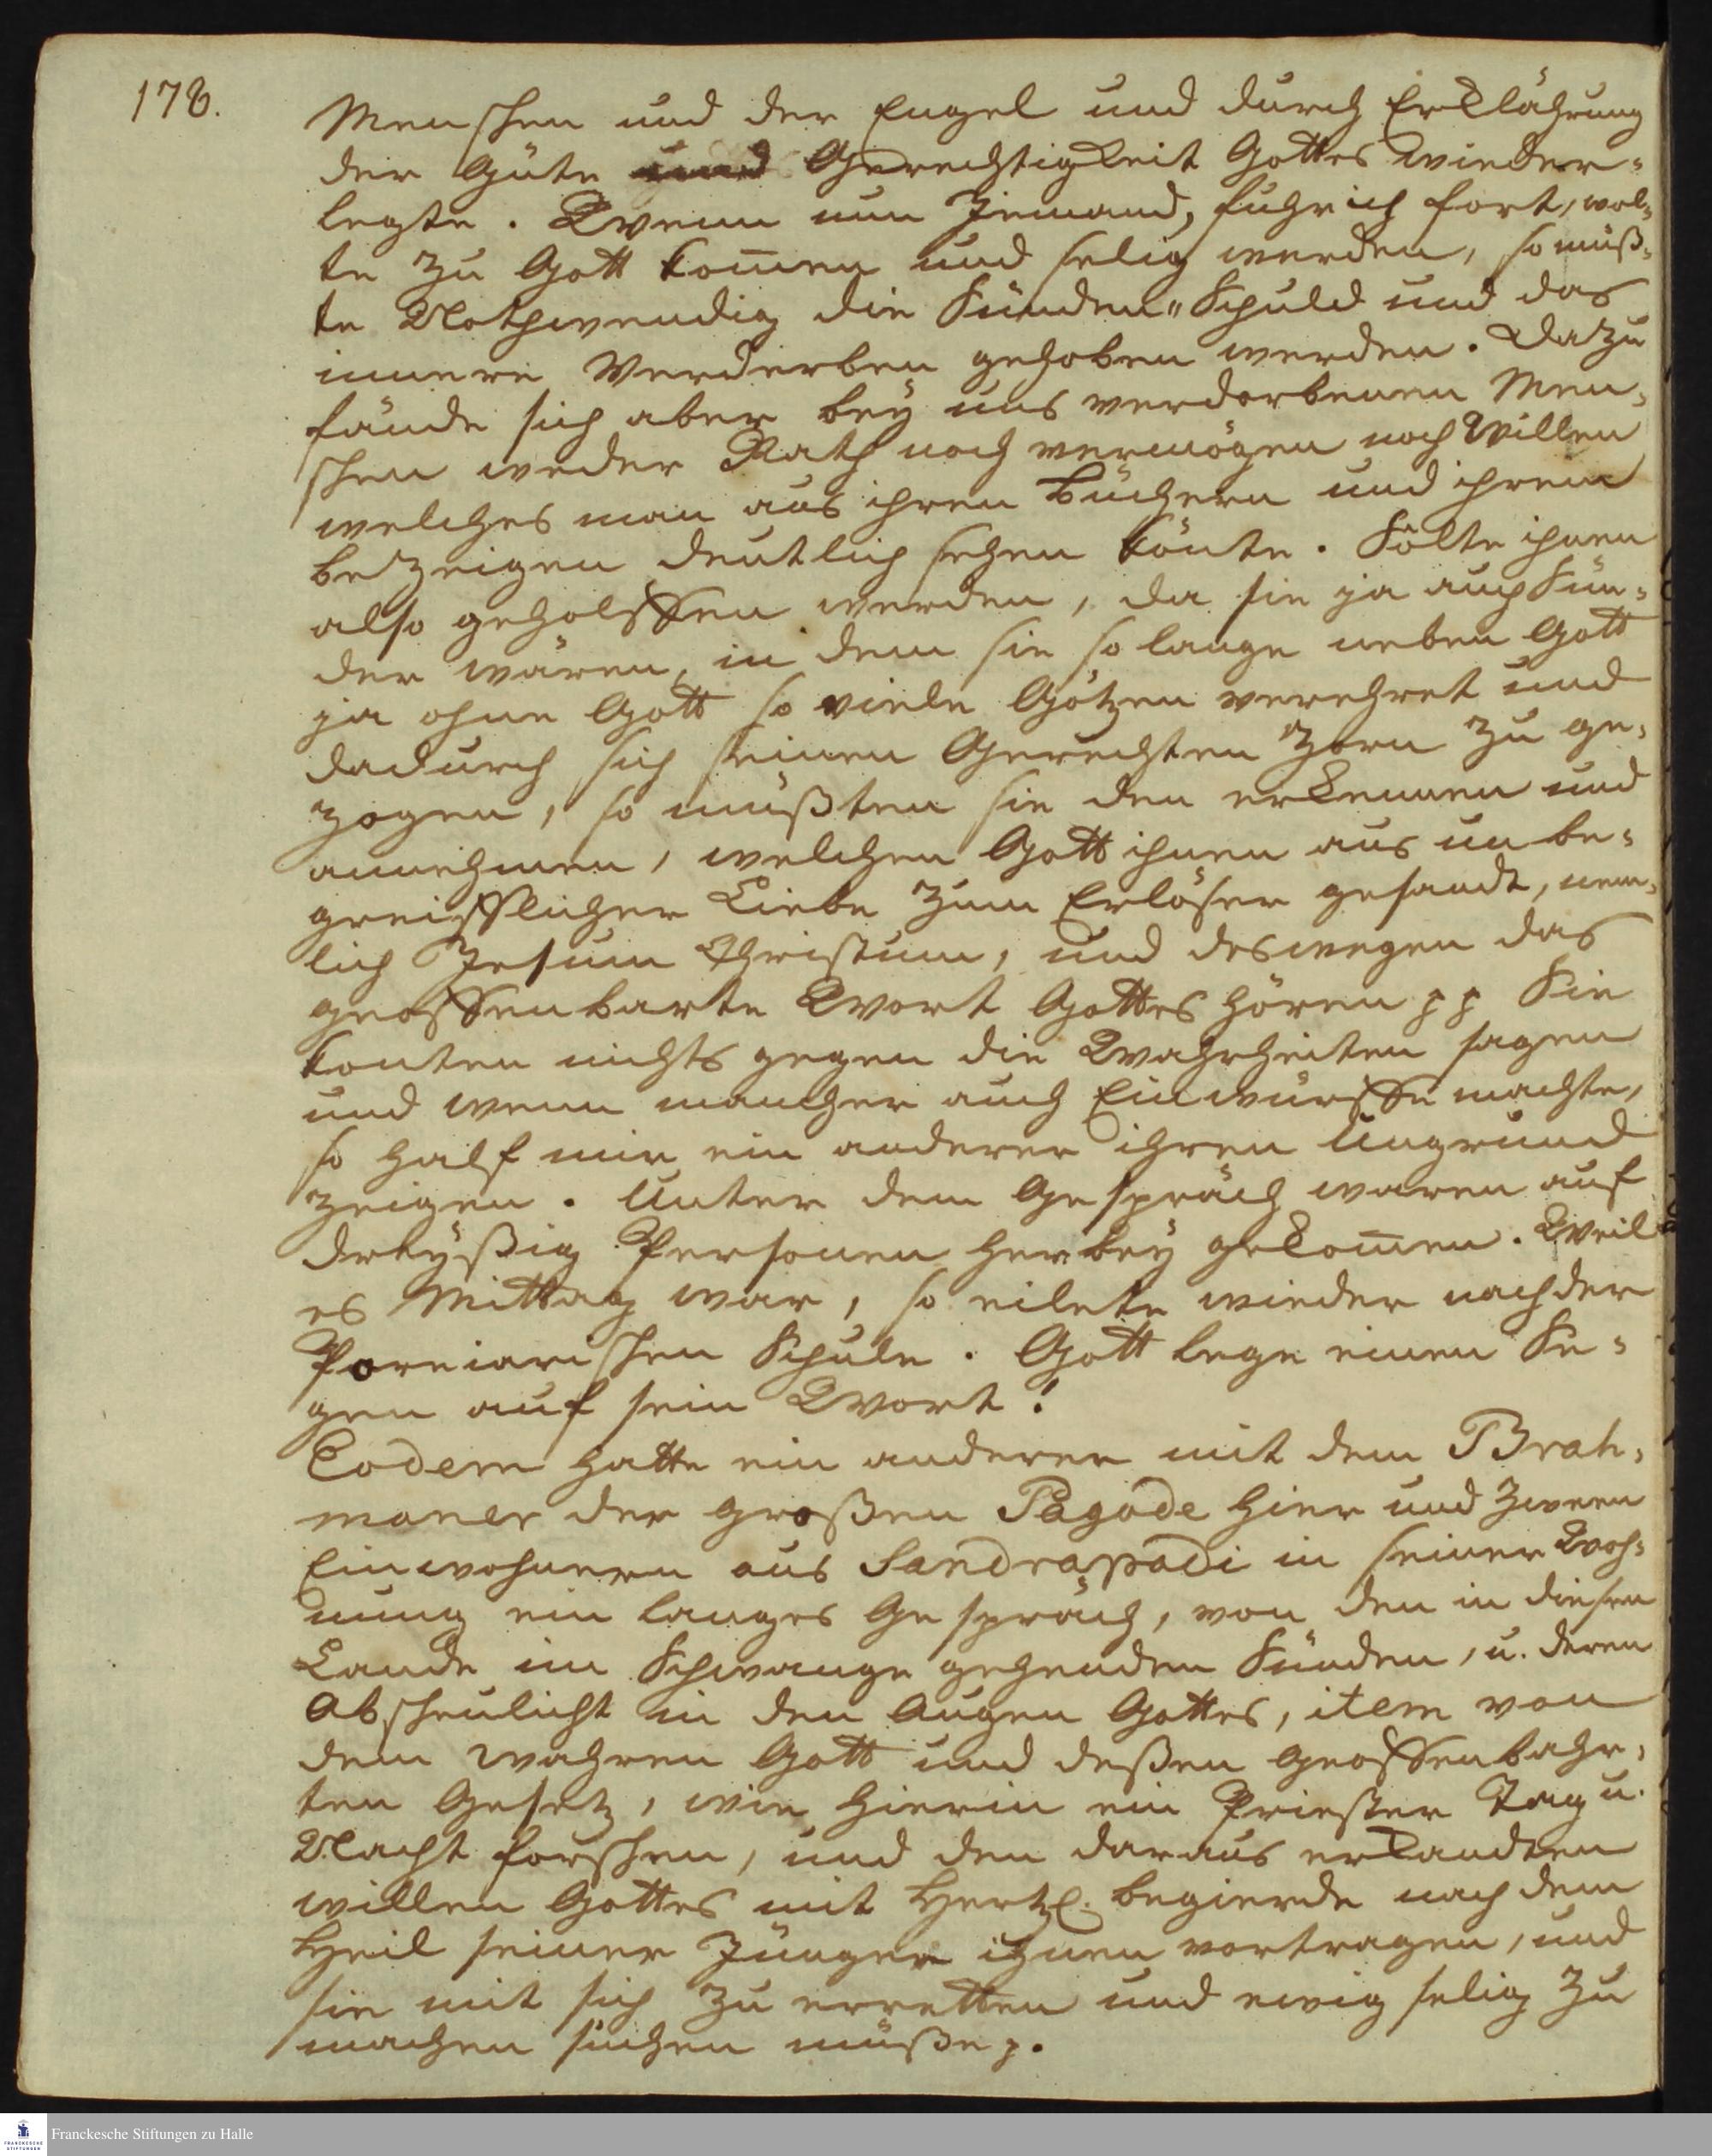 178.
Menschen und der Engel und durch Erklährung
der Güte und Gerechtigkeit Gottes wieder-
legte. Wenn nun Jemand, fuhr ich fort, wol-
te zu Gott kom̄en und selig werden, so müß-
te Nothwendig die Sünden-Schuld und das
innere Verderben gehoben werden. Dazu
fände sich aber bey uns verdorbenen Men-
schen weder Rath noch vermögen noch Willen
welches man aus ihren Büchern und ihrem
bezeigen deutlich sehen könte. Solte ihnen
also geholffen werden, da sie ja auch Sün-
der wären, in dem sie so lange neben Gott
ja ohne Gott so viele Götzen verehret und
dadurch sich seinen Gerechten Zorn zu ge-
zogen, so müßten sie den erkennen und
annehmen, welchen Gott ihnen aus unbe-
greifflicher Liebe zum Erlöser gesandt, nem-
lich Jesum Christum, und deswegen das
geoffenbarte Wort Gottes hören pp Sie
konten nichts gegen die Wahrheiten sagen
und wenn mancher auch Einwürffe machte,
so half mir ein anderer ihren Ungrund
zeigen. Unter dem Gespräch waren auf
dreyßig Personen herbey gekom̄en. Weil
es Mittag war, so eilete wieder nach der
Poreiarischen Schule. Gott lege einen Se-
gen auf sein Wort!
Eodem hatte ein anderer mit dem Brah-
maner der großen Pagode hier und zween
Einwohnern aus Sandrapadi in seiner Woh-
nung ein langes Gespräch, von den in diesen
Lande im Schwange gehenden Sünden, u. deren
Abscheulicht in den Augen Gottes, item von
dem wahren Gott und deßen geoffenbahr-
ten Gesetz, wie hierin ein Priester Tag u.
Nacht forschen, und den daraus erkandten
willen Gottes mit Hertzl. begierde nach dem
Heil seiner Jünger ihnen vortragen, und
sie mit sich zu erretten und ewig selig zu
machen suchen müße p.
Franckesche Stiftungen zu Halle
FRANCKESCHE
STIFTUNGEN